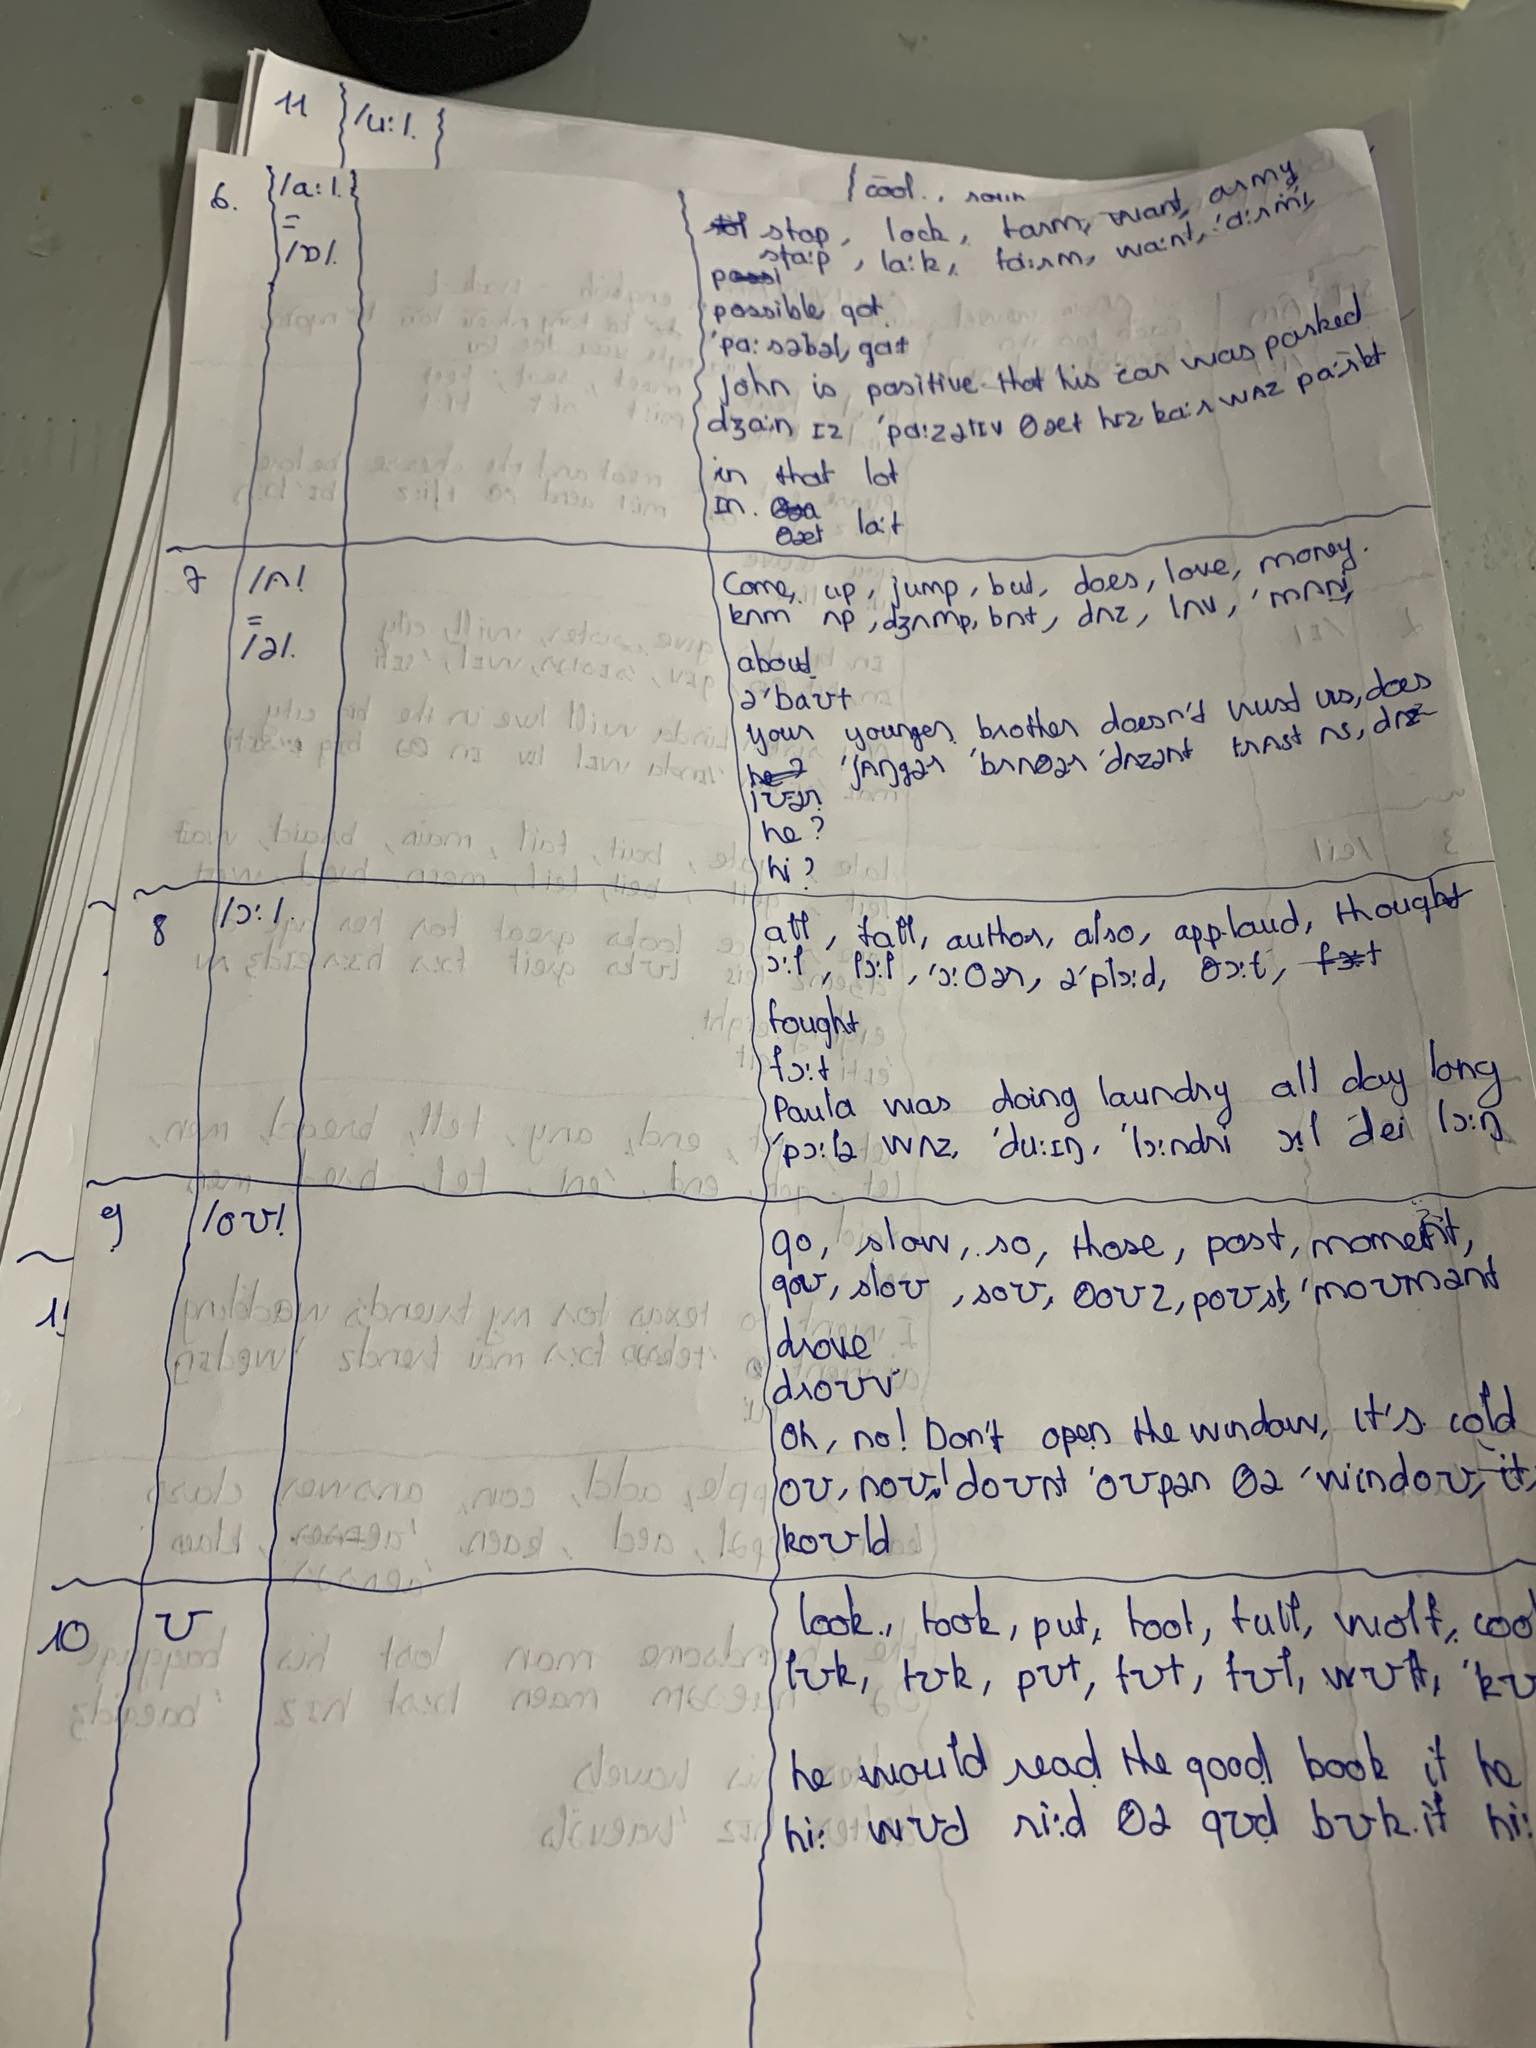 11 /u:/.
cool.,
6. /a:/. stop, lock, farm, want, army
= sta:p, la:k, fa:rm, wa:nt, 'a:rmi,
/ɒ/.
possible, got
'pa:səbəl, gat
John is positive that his car was parked
dʒa:n ɪz 'pa:zətɪv θæt hɪz ka:r wʌz pa:rkt
in that lot
ɪn. θæt la:t
7 /ʌ/ Come, up, jump, but, does, love, money.
= kʌm ʌp, dʒʌmp, bʌt, dʌz, lʌv, 'mʌni,
/ə/. about
ə'baʊt
your younger brother doesn't trust us, does
'jʌŋgər 'brʌθər 'dʌzənt trʌst ʌs, dʌz
jʊər
he?
hi?
8 /ɔ:/. all, fall, author, also, applaud, thought
ɔ:l, fɔ:l, 'ɔ:θər, ə'plɔ:d, θɔ:t,
fought
fɔ:t
Paula was doing laundry all day long
'pɔ:lə wʌz, 'du:ɪŋ, 'lɔ:ndri ɔ:l dei lɔ:ŋ
9 /oʊ/ go, slow, so, those, post, moment,
goʊ, sloʊ, soʊ, θoʊz, poʊst, 'moʊmənt
drove
droʊv
Oh, no! Don't open the window, it's cold
oʊ, noʊ! doʊnt 'oʊpən θə 'windoʊ, it,
koʊld
10 ʊ look., took, put, foot, full, wolf,
lʊk, tʊk, pʊt, fʊt, fʊl, wʊlf, 'kʊ
he would read the good book if he
hi: wʊd ri:d θə gʊd bʊk. if hi: